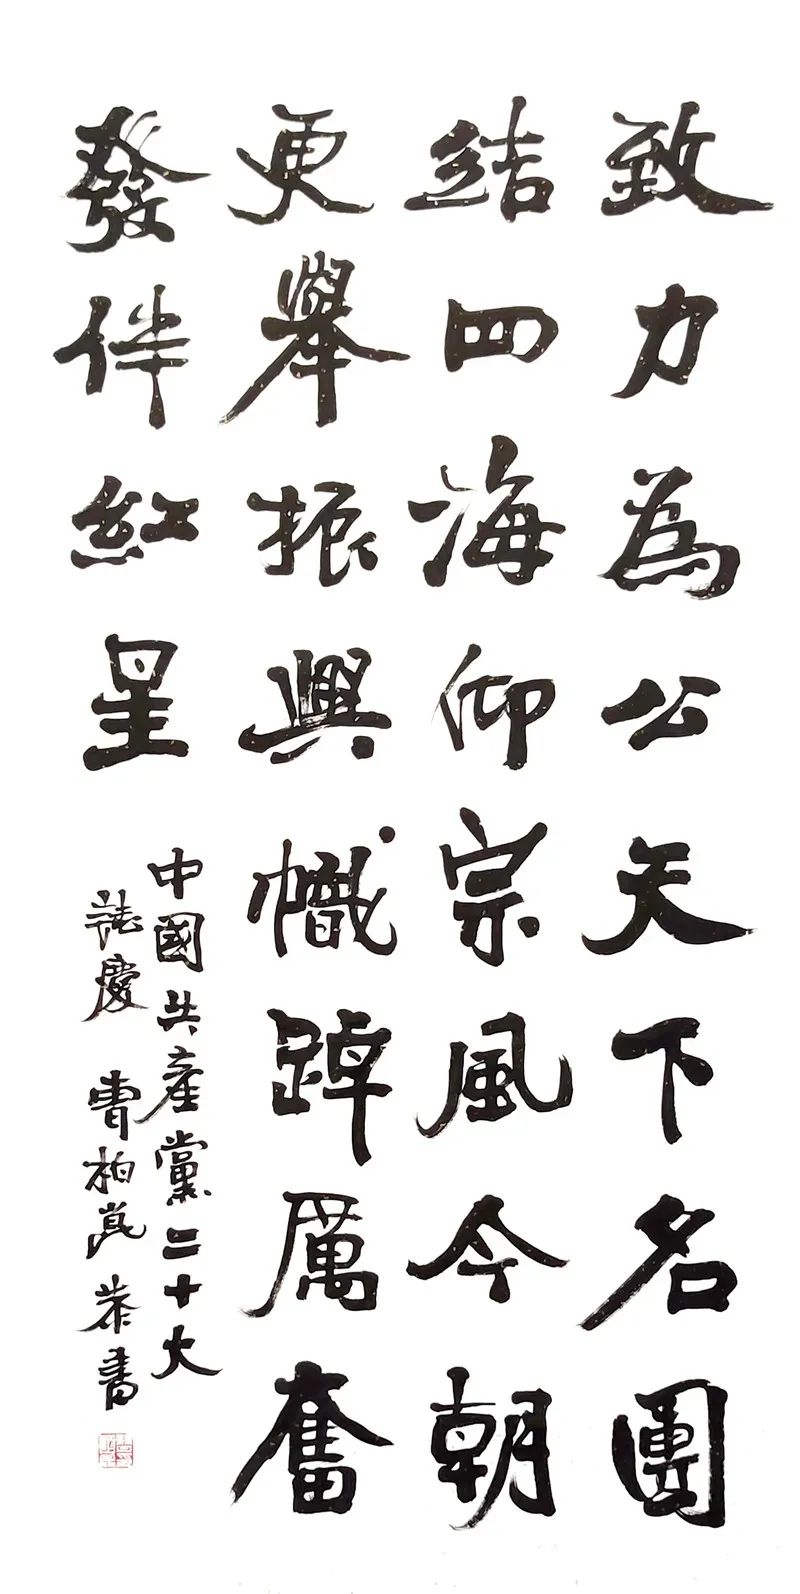 致力為公天下名團
結四海仰宗風今朝
更舉振興幟踔厲奮
發伴紅星
中國共產黨二十大
誌慶 曹柏崑 恭書